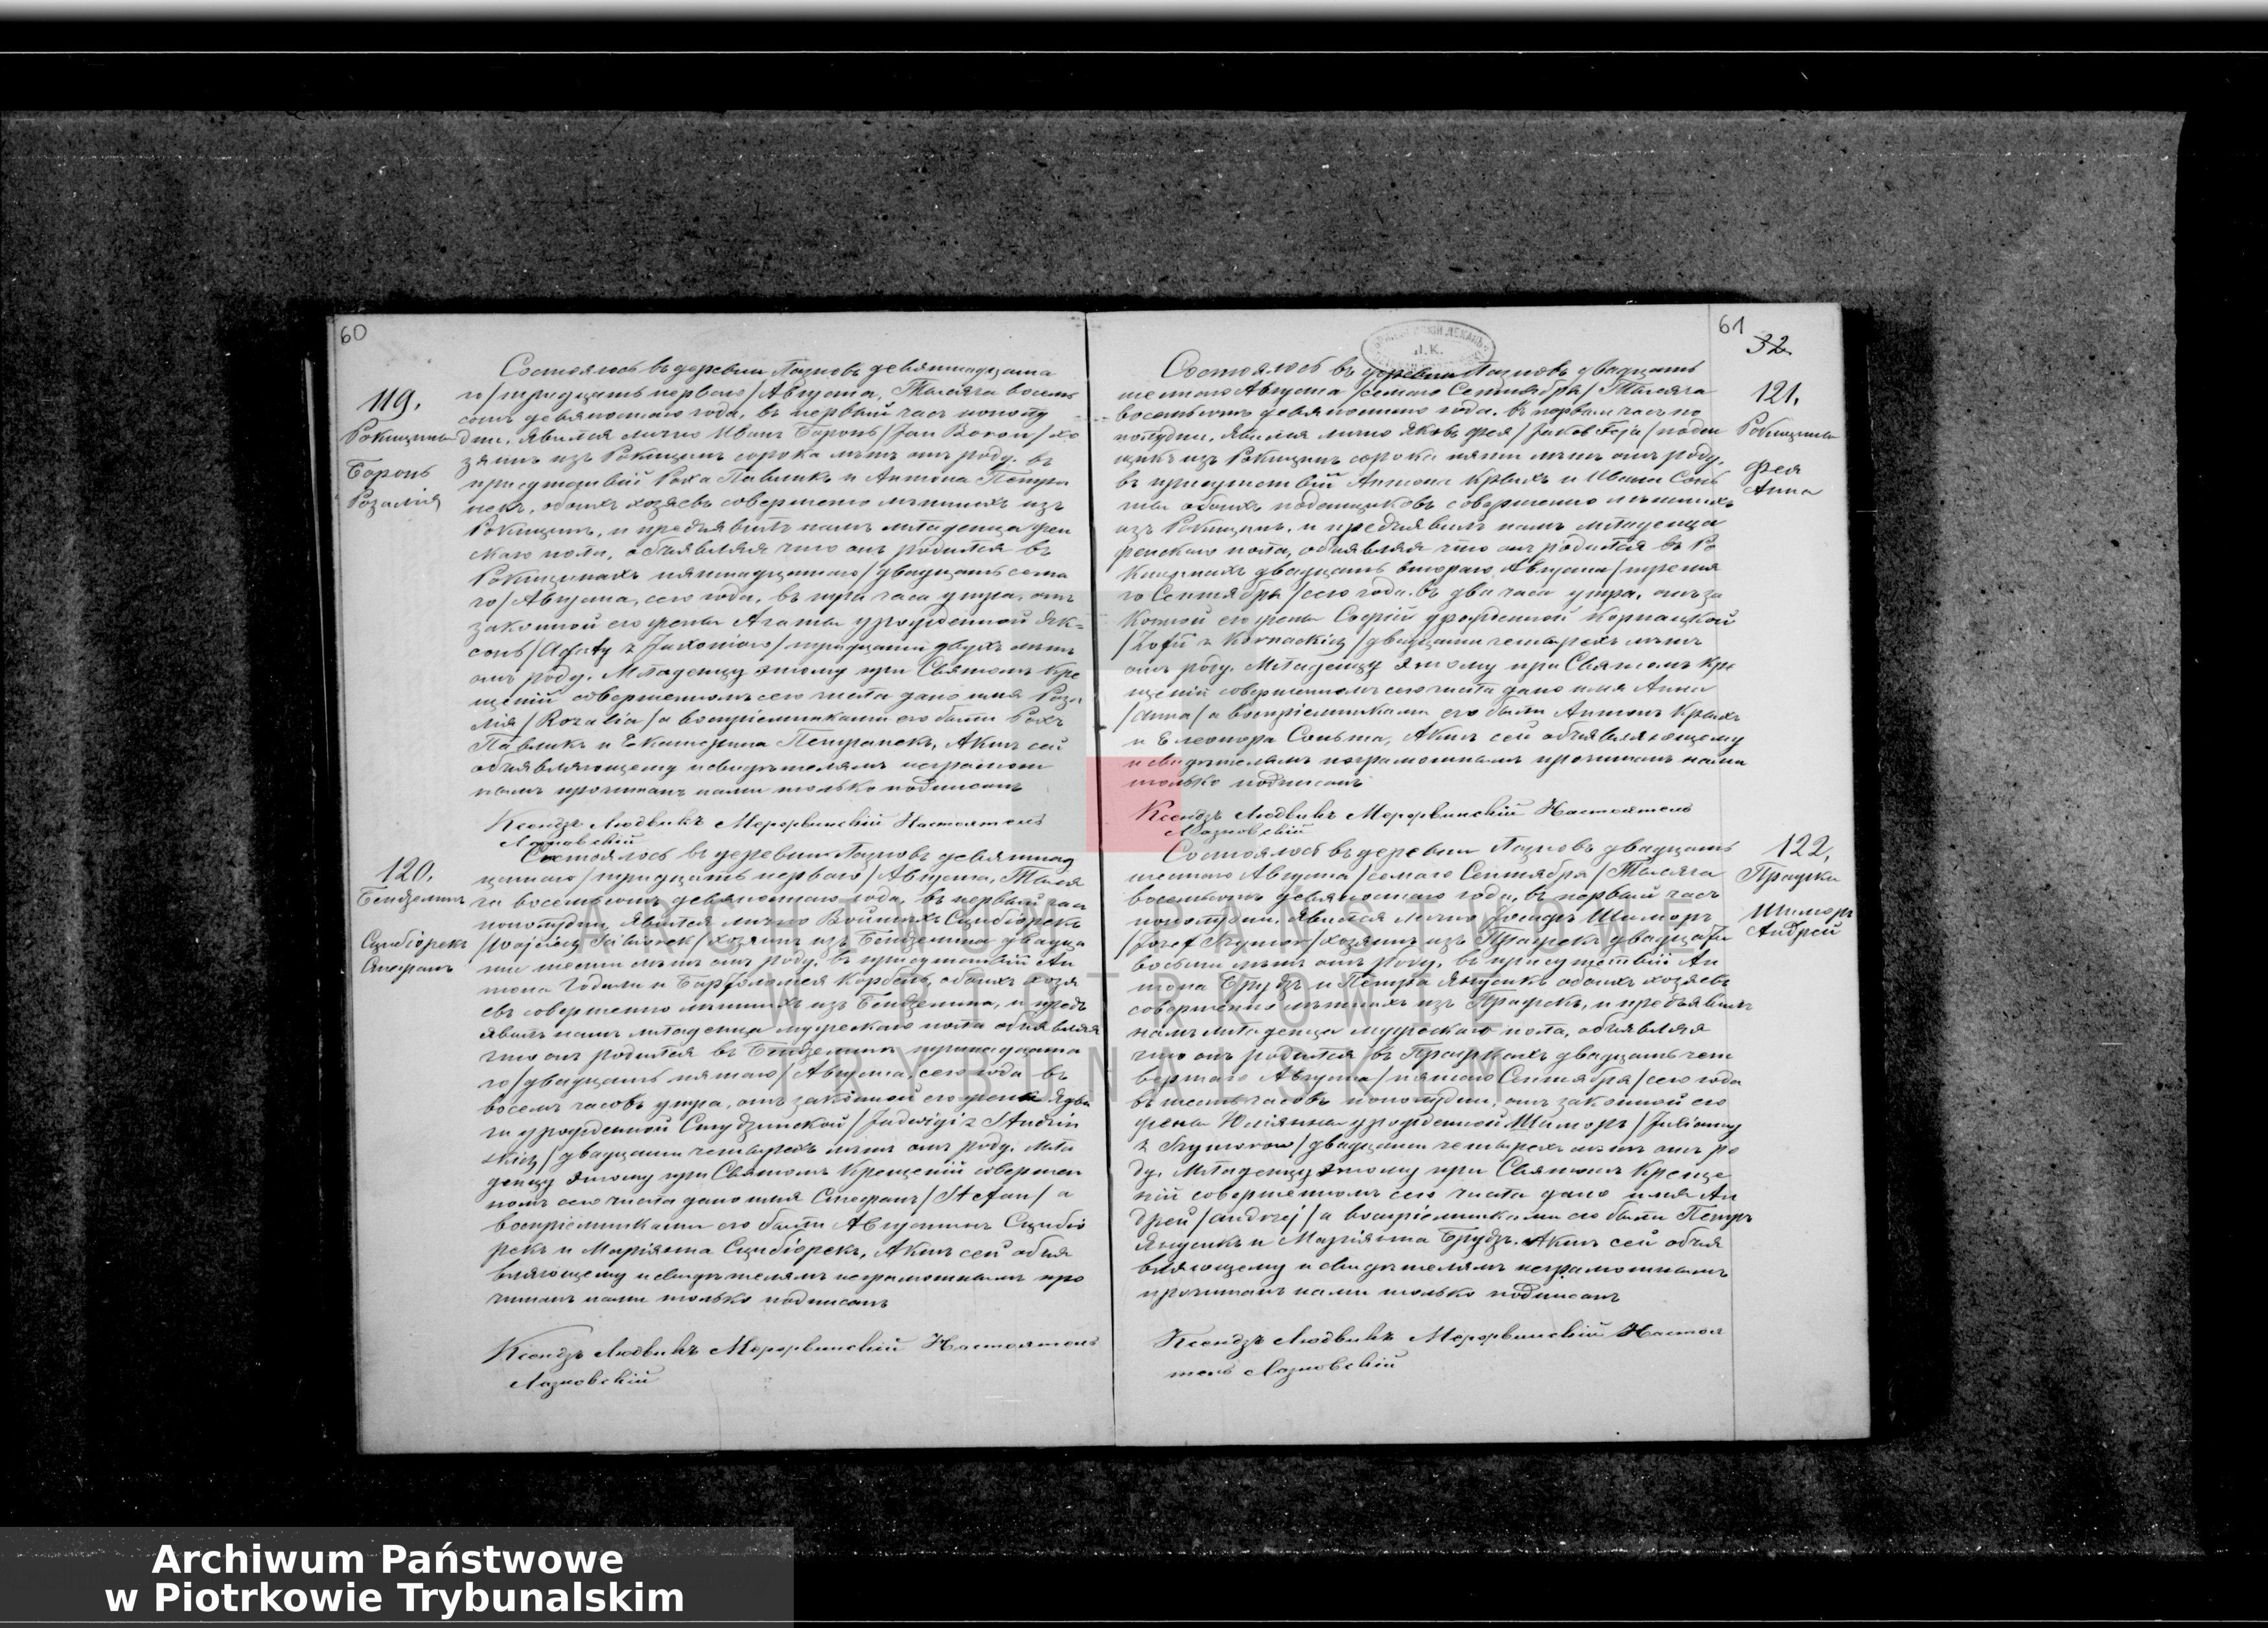 60
119.
Рокицины
Боронь
Розалія
Состоялось въ деревни Лазновъ девятнадцата
го /тридцать перваго/ Августа, Тысяча восемь
сотъ девяностаго года, въ первый часъ пополу
дни. Явился лично Иванъ Боронь /Jan Boron/ хо
зяинъ изъ Рокицинъ сорока лѣтъ отъ роду, въ
присутствіи Роха Павликъ и Антона Петра
некъ, обоихъ хозяевъ совершенно лѣтнихъ изъ
Рокицинъ, и предъявилъ намъ младенца жен
скаго пола, объявляя что онъ родился въ
Рокицинахъ пятнадцатаго /двадцать седьма
го/ Августа, сего года, въ три часа утра, отъ
законной его жены Агаты урожденной Як=
сонь /Agaty z Jaxoniow/ тридцати двухъ лѣтъ
отъ роду. Младенцу этому при Святомъ Кре
щеніи совершенномъ сего числа дано имя Роза
лія /Rozalia/ а воспріемниками его были Рохъ
Павликъ и Екатерина Петранекъ, Актъ сей
объявляющему и свидѣтелямъ неграмот
нымъ прочитанъ нами только подписанъ
Ксендзъ Людвикъ Мержвинскій Настоятель
Лазновскій
120.
Бендзелинъ
Сцибіорекъ
Стефанъ
Состоялось въ деревни Лазновъ девятнад
цатаго /тридцать перваго/ Августа, Тыся
ча восемьсотъ девяностаго года, въ первый часъ
пополудни, Явился лично Войтѣхъ Сцибіорекъ
/Wojciech Scibiorek/ хозяинъ изъ Бендзелина двадца
ти шести лѣтъ отъ роду, въ присутствіи Ан
тона Годали и Барѳоломея Корбель, обоихъ хозя
евъ совершенно лѣтнихъ изъ Бендзелина, и предъ
явилъ намъ младенца мужескаго пола объявляя
что онъ родился въ Бендзелинѣ тринадцата
го /двадцать пятаго/ Августа, сего года въ
восемь часовъ утра, отъ законной его жены Ядви
ги урожденной Студзинской /Jadwigi z Studzin
skich/ двадцати четырехъ лѣтъ отъ роду. Мла
денцу этому при Святомъ Крещеніи совершен
номъ сего числа дано имя Стефанъ /Stefan/ а
воспріемниками его были Августинъ Сцибіо
рекъ и Маріянна Сцибіорекъ, Актъ сей объя
вляющему и свидѣтелямъ неграмотнымъ про
читанъ нами только подписанъ
Ксендзъ Людвикъ Мержвинскій Настоятель
Лазновскій
61
32
121.
Рокицины
Фея
Анна
Состоялось въ деревни Лазновъ двадцать
шестаго Августа /седьмаго Сентября/ Тысяча
восемьсотъ девяностаго года. въ первый часъ по
полудни, явился лично Яковъ Фея /Jakob Feja/ поден
щикъ изъ Рокицинъ сорока пяти лѣтъ отъ роду,
въ присутствіи Антона Крыхъ и Ивана Сонь
ты обоихъ поденщиковъ совершенно лѣтнихъ
изъ Рокицинъ, и предъявилъ намъ младенца
женскаго пола, объявляя что онъ родился въ Ро
кицинахъ двадцать втораго Августа /третья
го Сентября/ сего года. въ два часа утра, отъ за
конной его жены Софіи урожденной Корнацкой
/Zofii z Kornackich/ двадцати четырехъ лѣтъ
отъ роду. Младенцу этому при Святомъ Кре
щеніи совершенномъ сего числа дано имя Анна
/Anna/ а воспріемниками его были Антонъ Крыхъ
и Елеонора Соньта, Актъ сей объявляющему
и свидѣтелямъ неграмотнымъ прочитанъ нами
только подписанъ
Ксендзъ Людвикъ Мержвинскій Настоятель
Лазновскій
122.
Пражки
Шиморъ
Андрей
Состоялось въ деревни Лазновъ двадцать
шестаго Августа /седьмаго Сентября/ Тысяча
восемьсотъ девяностаго года, въ первый часъ
пополудни, явился лично Іосифъ Шиморъ
/Józef Szymor/ хозяинъ изъ Пражекъ двадцати
восьми лѣтъ отъ роду, въ присутствіи Ан
тона Брудзъ и Петра Янусикъ обоихъ хозяевъ
совершенно лѣтнихъ изъ Пражекъ, и предъявилъ
намъ младенца мужескаго пола, объявляя
что онъ родился въ Пражкахъ двадцать чет
вертаго Августа /пятаго Сентября/ сего года
въ шесть часовъ пополудни, отъ законной его
жены Юлiянны урожденной Шиморъ /Julianny
z Szymorow/ двадцати четырехъ лѣтъ отъ ро
ду. Младенцу этому при Святомъ Креще
ніи совершенномъ сего числа дано имя Ан
дрей /Andrzej/ а воспріемниками его были Петръ
Янусикъ и Маріянна Брудзъ. Актъ сей объя
вляющему и свидѣтелямъ неграмотнымъ
прочитанъ нами только подписанъ
Ксендзъ Людвикъ Мержвинскій Настоя
тель Лазновскій
ARCHIWUM PAŃSTWOWE
W PIOTRKOWIE
TRYBUNALSKIM
Archiwum Państwowe
w Piotrkowie Trybunalskim